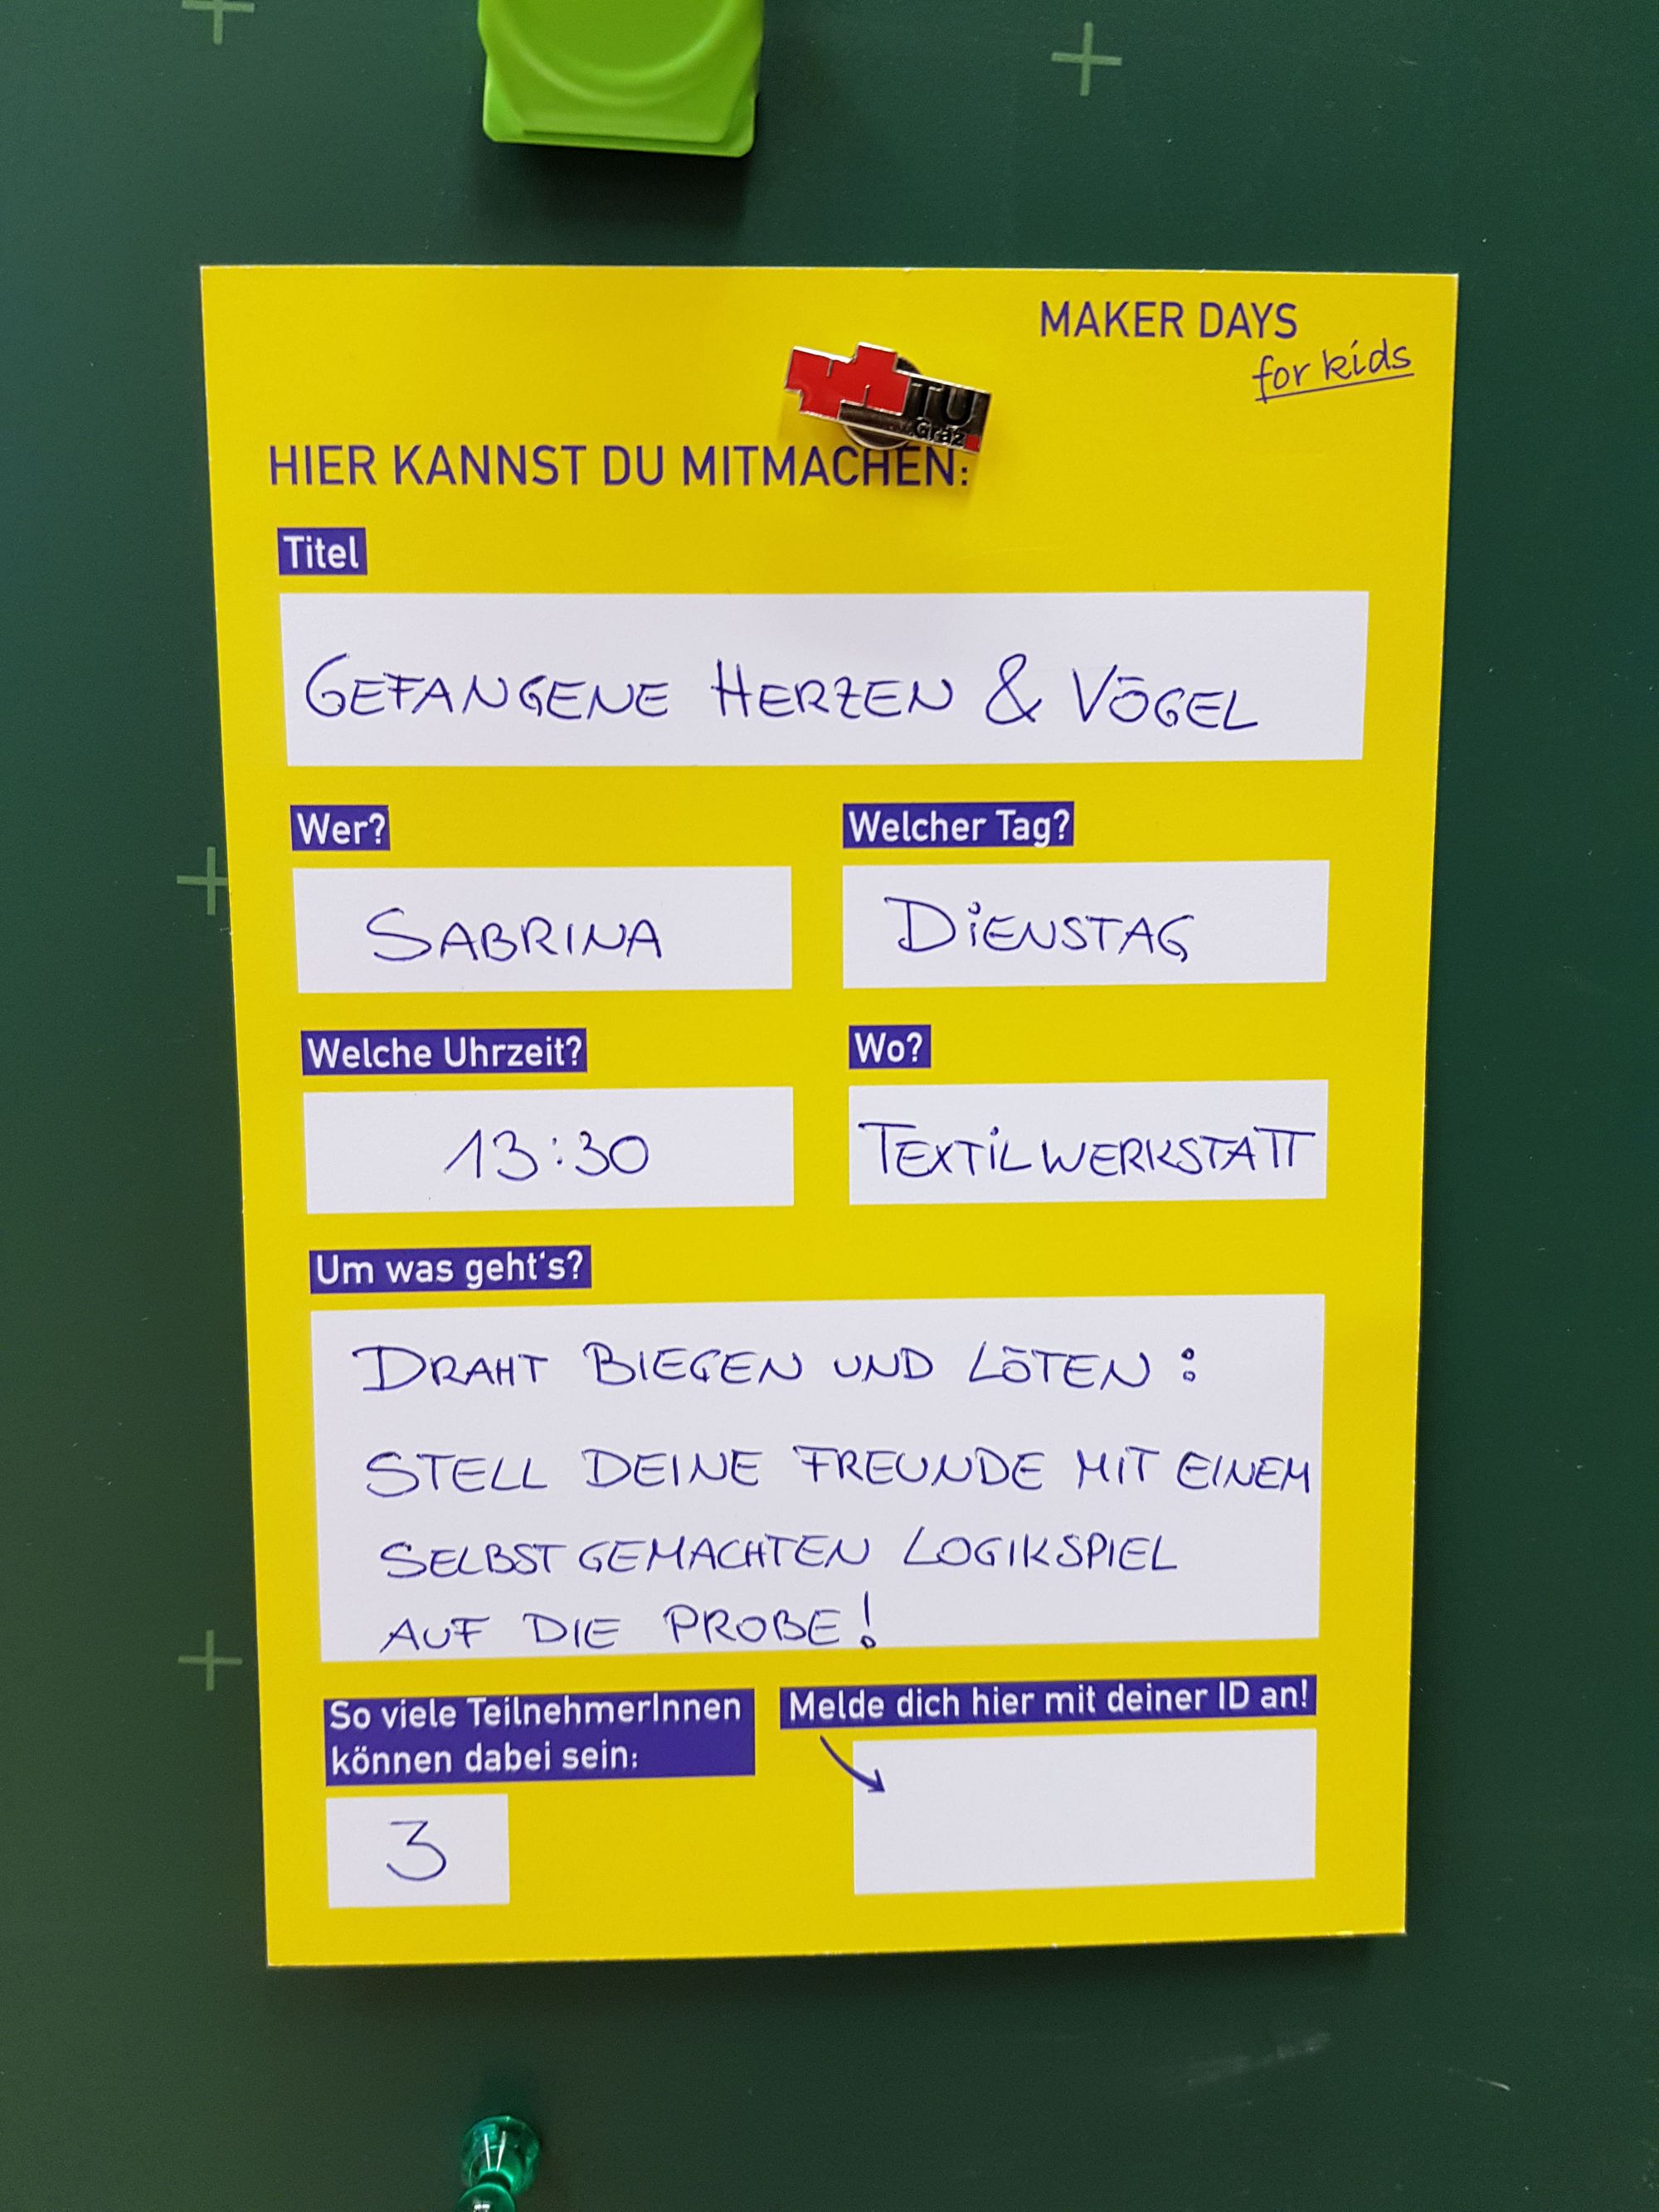 MAKER DAYS
for kids
TU
Graz
HIER KANNST DU MITMACHEN:
Titel
GEFANGENE HERZEN & VÖGEL
Wer?
SABRINA
Welcher Tag?
DIENSTAG
Welche Uhrzeit?
13:30
Wo?
TEXTILWERKSTATT
Um was geht's?
DRAHT BIEGEN UND LÖTEN:
STELL DEINE FREUNDE MIT EINEM
SELBSTGEMACHTEN LOGIKSPIEL
AUF DIE PROBE!
So viele TeilnehmerInnen
können dabei sein:
3
Melde dich hier mit deiner ID an!